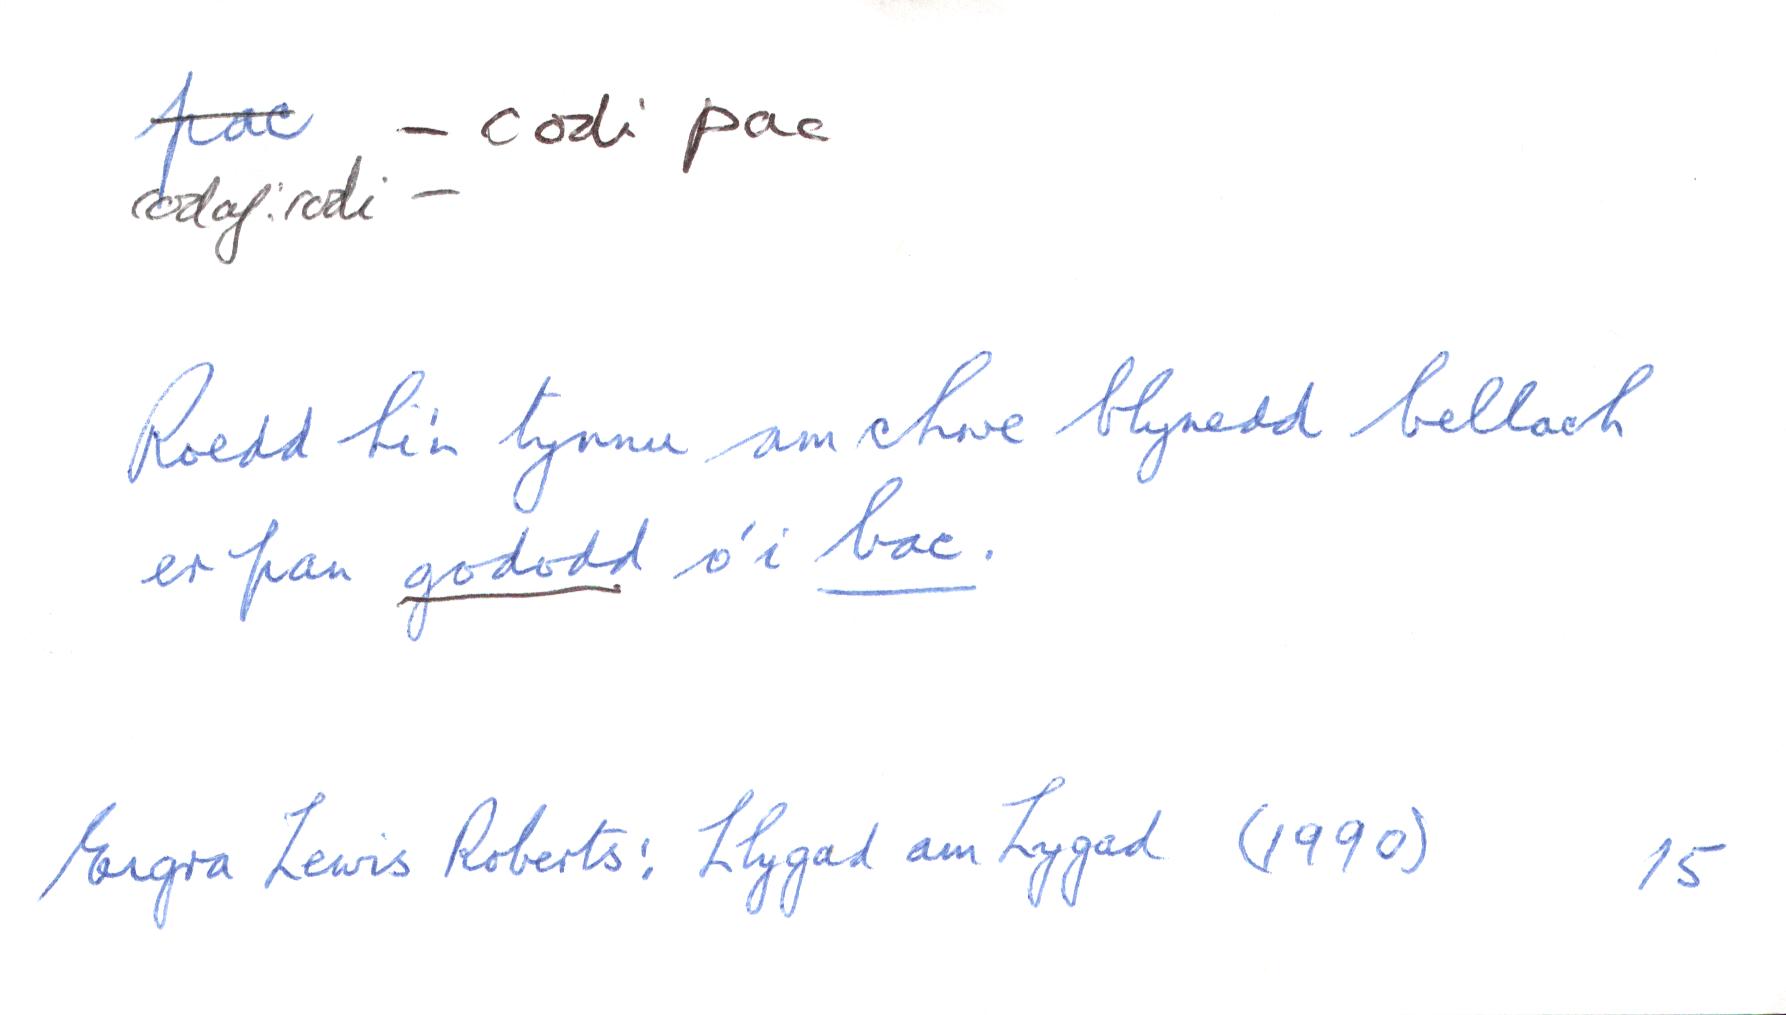 pac - codi pac
codaf: codi -
Roedd hi'n tynnu am chwe blynedd bellach
er pan gododd o'i bac.
Eigra Lewis Roberts: Llygad am Lygad (1990) 15